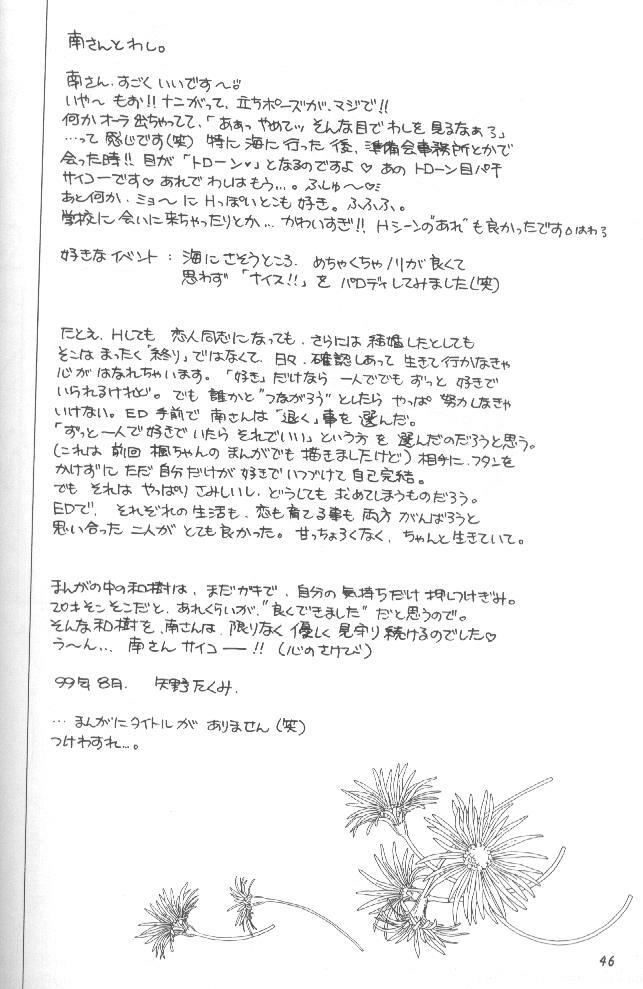 南さんとわし。
南さん、すごくいいです〜♡
いや〜もお!!ナニがって、立ちポーズが、マジで!!
何かオーラ出ちゃってて、「あぁっやめてッそんな目でわしを見るなぁろ」
…って感じです(笑)特に海に行った後、準備会事務所とかで
会った時!!目が「トローン♡」となるのですよ♡あのトローン目パチ
サイコーです♡あれでわしはもう…。ふしゅ〜♡
あと何か、ミョーにHっぽいとこも好き。ふふふ、。
学校に会いに来ちゃったりとか…かわいすぎ!!Hシーンの"あれ"も良かったですはわろ
好きなイベント:海にさそうところ、めちゃくちゃノリが良くて
思わず「ナイス!!」をパロディしてみました(笑)
たとえ、Hしても恋人同志になっても、さらには結婚したとしても
そこはまったく「終り」ではなくて、日々、確認しあって生きて行かなきゃ
心がはなれちゃいます。「好き」だけなら一人ででもずっと好きで
いられるけれど。でも誰かと"つながろう"としたらやっぱ努力しなきゃ
いけない。ED手前で南さんは「退く」事を選んだ。
「ずっと一人で好きでいたらそれでいい」という方を選んだのだろうと思う。
(これは前回楓ちゃんのまんがでも描きましたけど)相手に、フタンを
かけずにただ自分だけが好きでいつづけて自己完結。
でもそれはやっぱりさみしいし、どうしても求めてしまうものだろう。
EDで、それぞれの生活も、恋も育てる事も両方がんばろうと
思い合った二人がとても良かった。甘っちょろくなく、ちゃんと生きていて。
まんがの中の和樹は、まだガキで、自分の気持ちだけ押しつけぎみ。
20才そこそこだと、あれくらいが、"良くできました"だと思うので。
そんな和樹を、南さんは、限りなく優しく見守り続けるのでした♡
う〜ん…南さんサイコー!!(心のさけび)
99年8月、矢野たくみ.
…まんがにタイトルがありません(笑)
つけわすれ…。
46